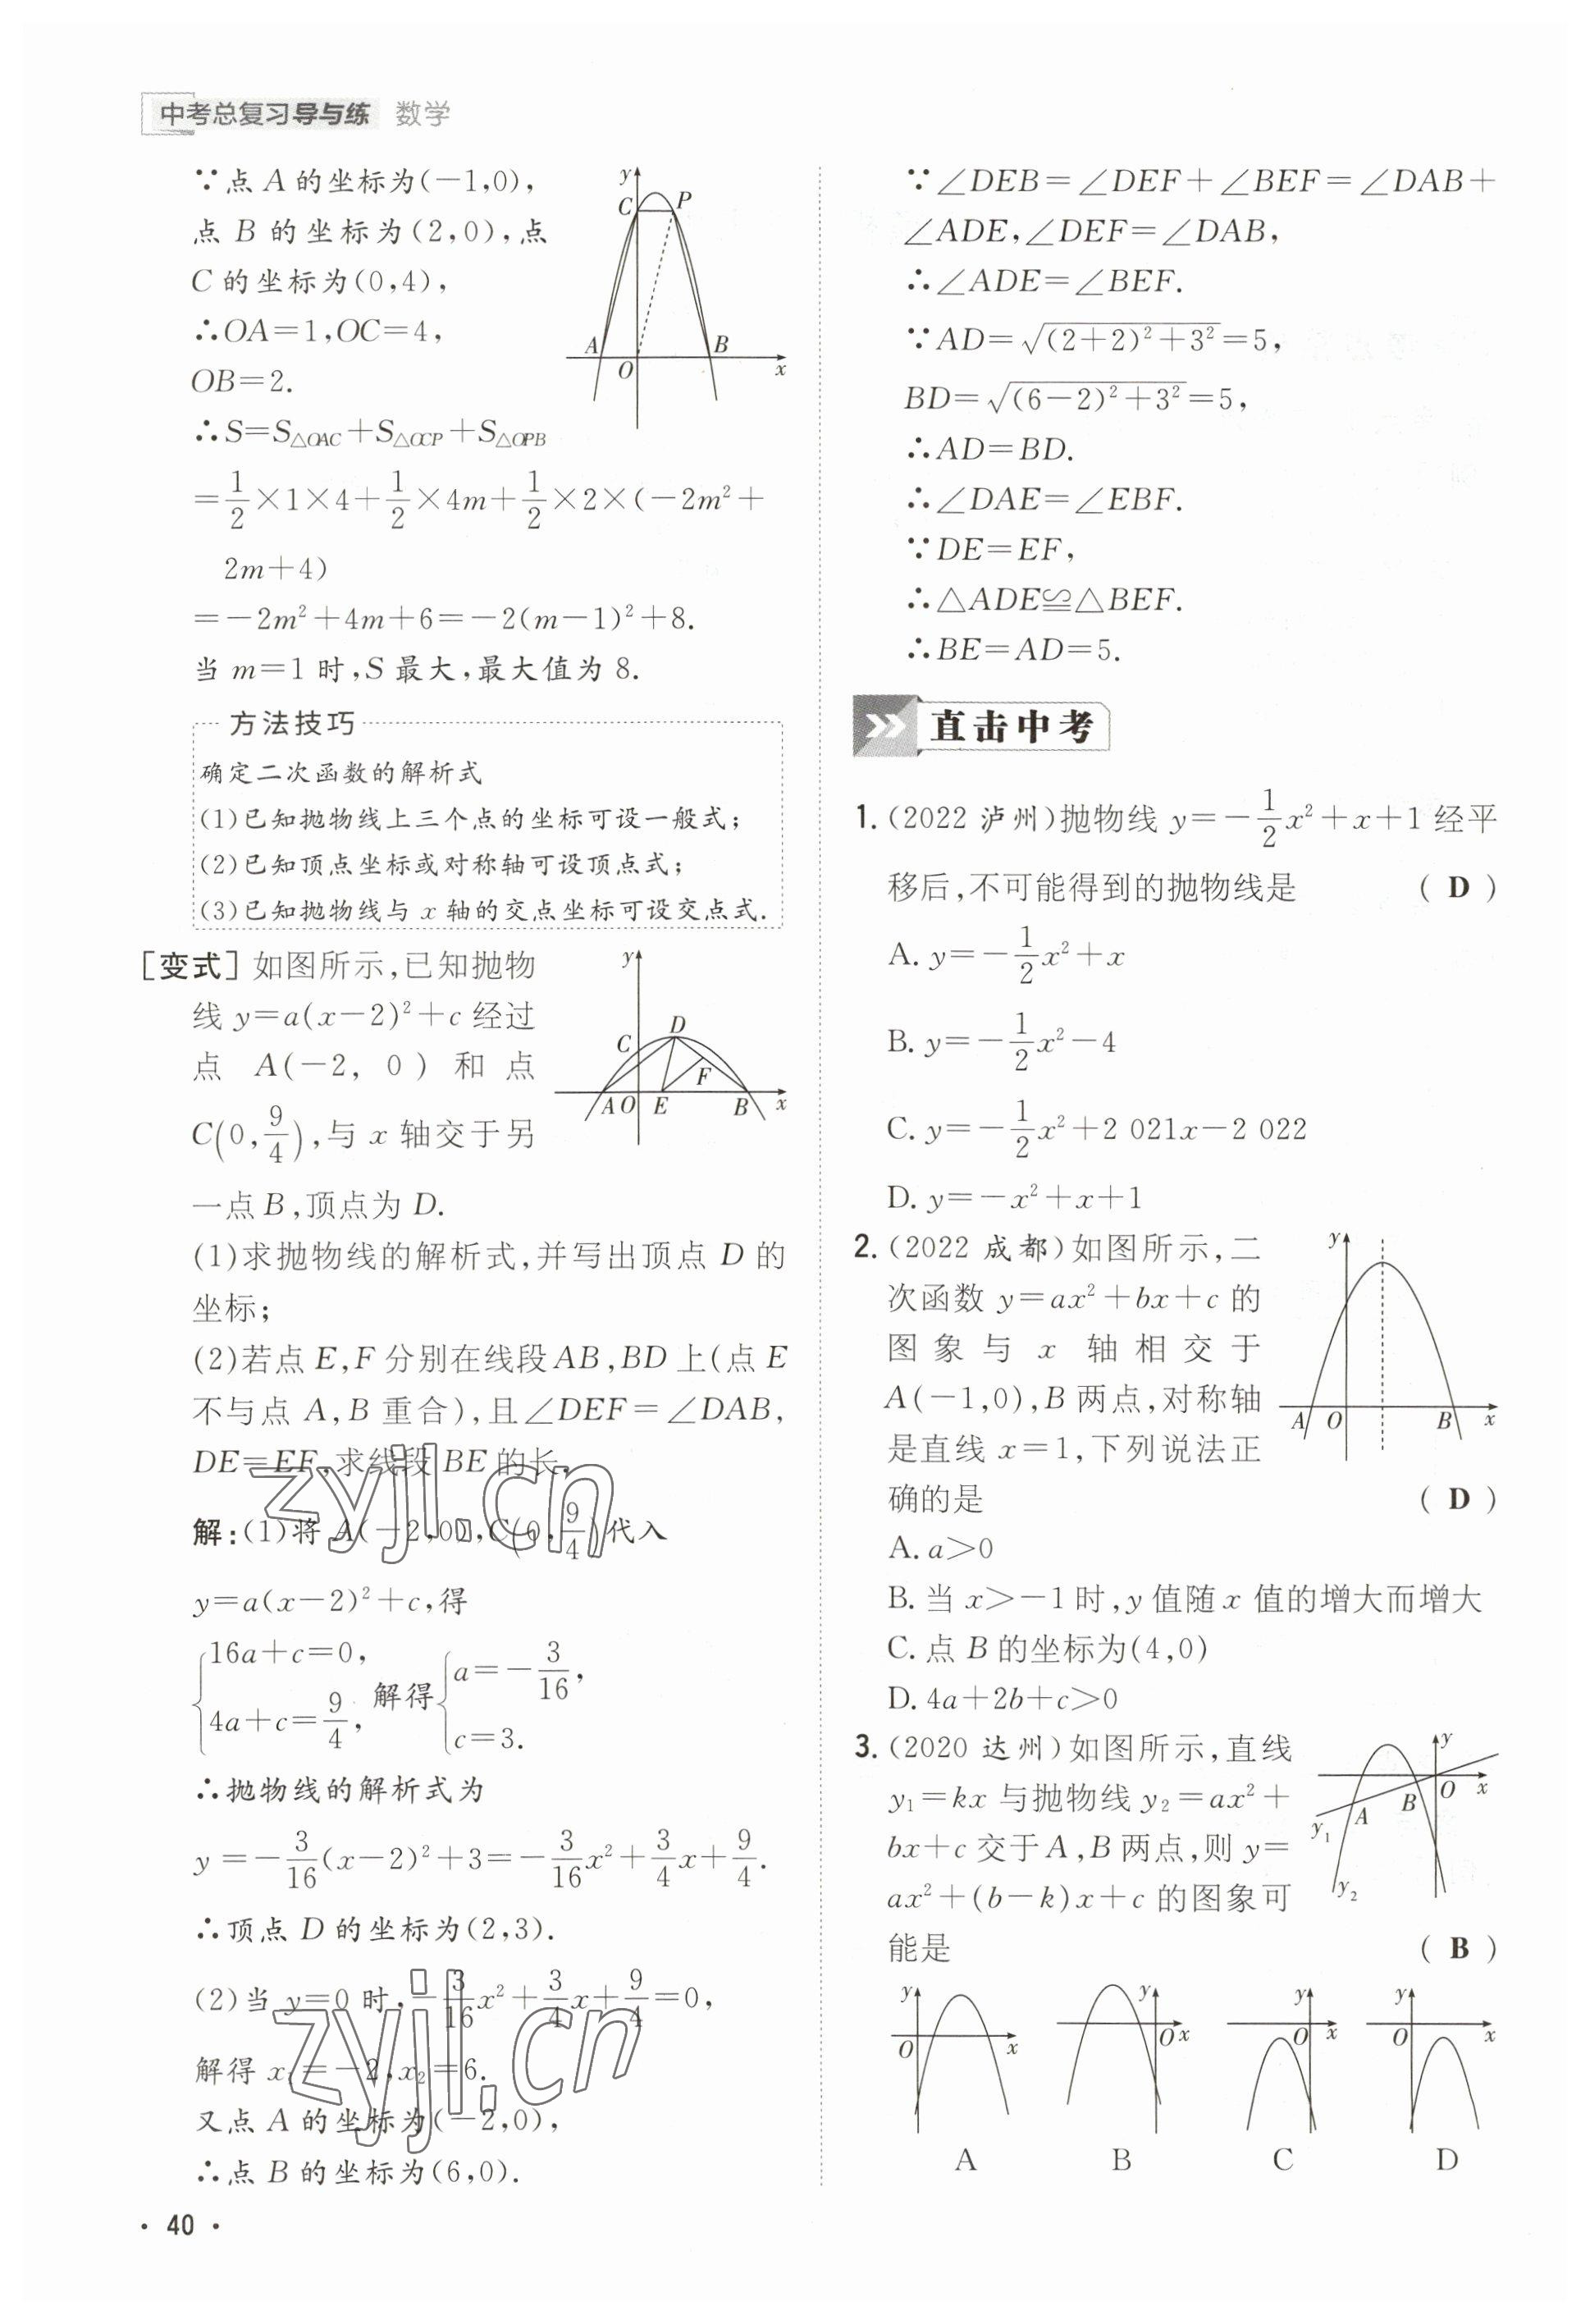 中考总复习导与练 数学
∵点 A 的坐标为(−1,0),
点 B 的坐标为(2,0),点
C 的坐标为(0,4),
∴OA=1,OC=4,
OB=2.
∴S=S△OAC+S△OCP+S△OPB
=1/2×1×4+1/2×4m+1/2×2×(−2m²+
2m+4)
=−2m²+4m+6=−2(m−1)²+8.
当 m=1 时,S 最大,最大值为 8.
y
C
P
A
B
O
x
方法技巧
确定二次函数的解析式
(1)已知抛物线上三个点的坐标可设一般式;
(2)已知顶点坐标或对称轴可设顶点式;
(3)已知抛物线与 x 轴的交点坐标可设交点式.
[变式] 如图所示,已知抛物
线 y=a(x−2)²+c 经过
点 A(−2, 0) 和点
C(0,9/4),与 x 轴交于另
一点 B,顶点为 D.
y
D
C
F
A O E B x
(1)求抛物线的解析式,并写出顶点 D 的
坐标;
(2)若点 E,F 分别在线段 AB,BD 上(点 E
不与点 A,B 重合),且∠DEF=∠DAB,
DE=EF,求线段 BE 的长.
解:(1)将 A(−2,0),C(0,9/4)代入
y=a(x−2)²+c,得
{16a+c=0, 4a+c=9/4, 解得{a=−3/16, c=3.
∴抛物线的解析式为
y=−3/16(x−2)²+3=−3/16x²+3/4x+9/4.
∴顶点 D 的坐标为(2,3).
(2)当 y=0 时,−3/16x²+3/4x+9/4=0,
解得 x₁=−2,x₂=6.
又点 A 的坐标为(−2,0),
∴点 B 的坐标为(6,0).
zyjl.cn
zyjl.cn
· 40 ·
∵∠DEB=∠DEF+∠BEF=∠DAB+
∠ADE,∠DEF=∠DAB,
∴∠ADE=∠BEF.
∵AD=√((2+2)²+3²)=5,
BD=√((6−2)²+3²)=5,
∴AD=BD.
∴∠DAE=∠EBF.
∵DE=EF,
∴△ADE≌△BEF.
∴BE=AD=5.
直击中考
1. (2022 泸州)抛物线 y=−1/2x²+x+1 经平
移后,不可能得到的抛物线是 ( D )
A. y=−1/2x²+x
B. y=−1/2x²−4
C. y=−1/2x²+2 021x−2 022
D. y=−x²+x+1
2. (2022 成都)如图所示,二
次函数 y=ax²+bx+c 的
图象与 x 轴相交于
A(−1,0),B 两点,对称轴
是直线 x=1,下列说法正
确的是 ( D )
y
A O B x
A. a>0
B. 当 x>−1 时,y 值随 x 值的增大而增大
C. 点 B 的坐标为(4,0)
D. 4a+2b+c>0
3. (2020 达州)如图所示,直线
y₁=kx 与抛物线 y₂=ax²+
bx+c 交于 A,B 两点,则 y=
ax²+(b−k)x+c 的图象可
能是 ( B )
y
O x
B
A
y₁
y₂
y
O x
y
O x
y
O x
y
O x
A B C D